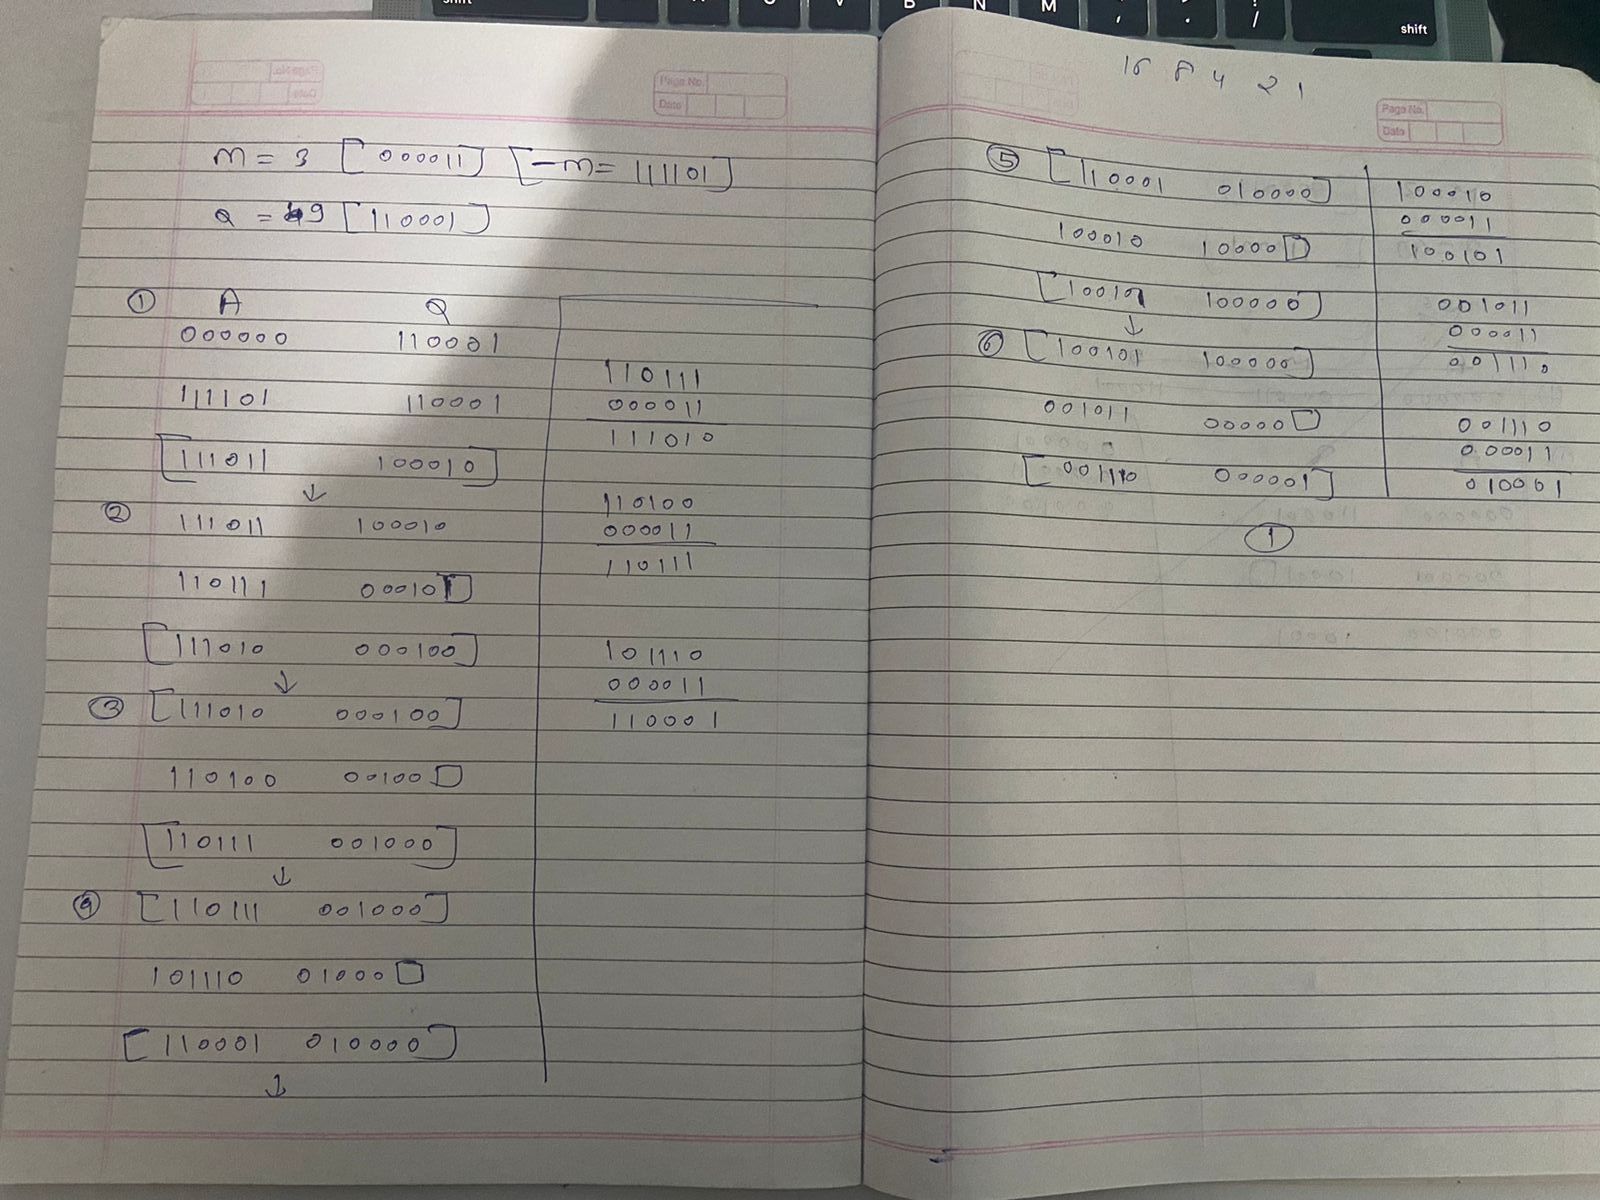 shift
N
M
shift
Page No.
Date
m = 3 [000011] [-m = 111101]
Q = 49 [110001]
① A Q
000000 110001
111101 110001
[111011 100010]
↓
② 111011 100010
110111 00010
[111010 000100]
↓
③ [111010 000100]
110100 00100□
[110111 001000]
↓
④ [110111 001000]
101110 01000□
[110001 010000]
↓
110111
000011
111010
110100
000011
110111
101110
000011
110001
16 8 4 2 1
Page No.
Date
⑤ [110001 010000]
100010 10000□
[100101 100000]
↓
⑥ [100101 100000]
001011 00000□
[001110 000001]
①
100010
000011
100101
001011
000011
001110
001110
000011
010001